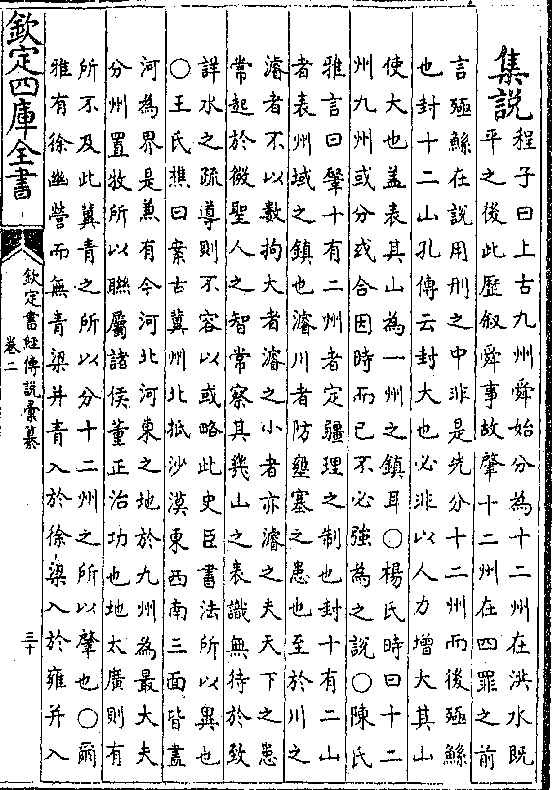 集說程子曰上古九州舜始分為十二州在洪水既
平之後此歷叙舜事故肇十二州在四罪之前
言殛鯀在說用刑之中非是先分十二州而後殛鯀
也封十二山孔傳云封大也必非以人力增大其山
使大也蓋表其山為一州之鎮耳○楊氏時曰十二
州九州或分或合因時而已不必強為之說○陳氏
雅言曰肇十有二州者定疆理之制也封十有二山
者表州域之鎮也濬川者防壅塞之患也至於川之
濬者不以數拘大者濬之小者亦濬之夫天下之患
常起於微聖人之智常察其幾山之表識無待於致
詳水之疏導則不容以或略此史臣書法所以異也
○王氏樵曰案古冀州北抵沙漠東西南三面皆盡
河為界是兼有今河北河東之地於九州為最大夫
分州置牧所以聯屬諸侯董正治功也地太廣則有
所不及此冀青之所以分十二州之所以肇也○爾
雅有徐幽營而無青梁并青入於徐梁入於雍并入
欽定四庫全書
欽定書經傳說彙纂
卷二
三十